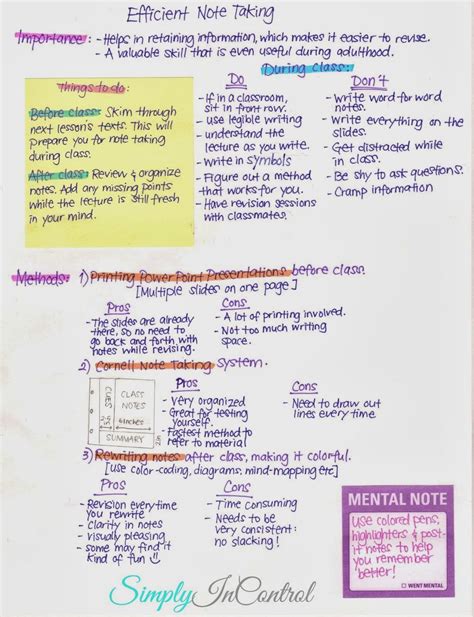 Efficient Note Taking
Importance: - Helps in retaining information, which makes it easier to revise.
- A valuable skill that is even useful during adulthood.
During class:
Things to do:
Before class: Skim through
next lesson's texts. This will
prepare you for note taking
during class.
After class: Review & organize
notes. Add any missing points
while the lecture is still fresh
in your mind.
Do
- If in a classroom,
sit in front row.
- use legible writing
- understand the
lecture as you write.
- Write in symbols
- Figure out a method
that works for you.
- Have revision sessions
with classmates.
Don't
- Write word for word
notes.
- Write everything on the
slides.
- Get distracted while
in class.
- Be shy to ask questions.
- Cramp information
Methods: 1) Printing PowerPoint Presentations before class.
[Multiple slides on one page]
Pros
- The slides are already
there, so no need to
go back and forth with
notes while revising.
Cons
- A lot of printing involved.
- Not too much writing
space.
2) Cornell Note Taking System.
CUES
CLASS
NOTES
6inches
SUMMARY
2in
Pros
- Very organized
- Great for testing
yourself.
- Fastest method to
refer to material
Cons
- Need to draw out
lines every time.
3) Rewriting notes after class, making it colorful.
[use color-coding, diagrams, mind-mapping etc]
Pros
- Revision everytime
you rewrite
- clarity in notes
- visually pleasing
- some may find it
kind of fun
Cons
- Time consuming
- Needs to be
very consistent:
no slacking!
MENTAL NOTE
use colored pens,
highlighters & post-
it notes to help
you remember
better!
WENT MENTAL
SimplyInControl